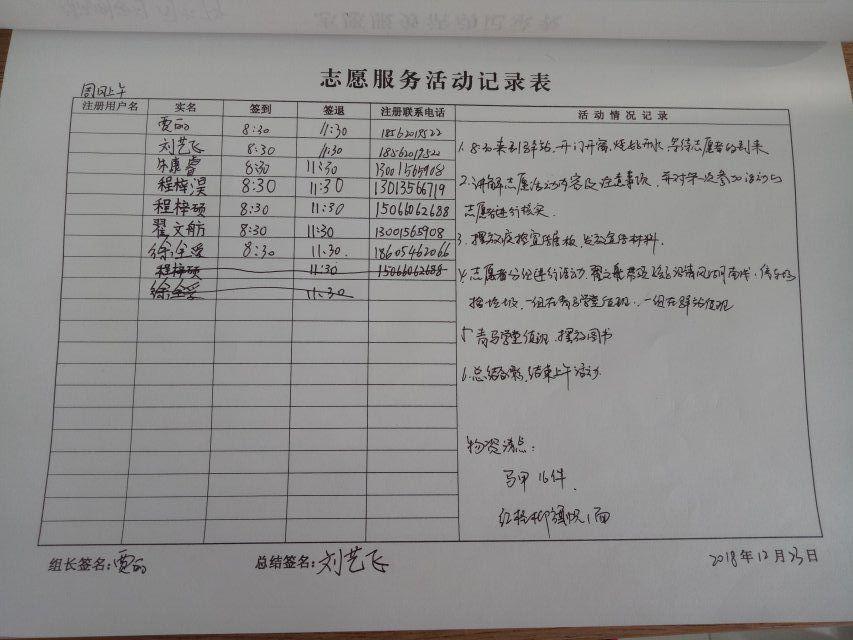 志愿服务活动记录表
周日上午
注册用户名 实名 签到 签退 注册联系电话 活动情况记录
贾丽 8:30 11:30 18562019522
刘艺飞 8:30 11:30 18562019522
朱康睿 8:30 11:30 13001565908
程梓淏 8:30 11:30 13013566719
程梓硕 8:30 11:30 15066062688
翟文舫 8:30 11:30 13001565908
徐全受 8:30 11:30 18605462066
程梓硕 11:30 15066062688
徐全受 11:30
1. 8:00来到驿站,开门开窗,烧热水,等待志愿者的到来
2. 讲解志愿活动内容及注意事项,并对第一次参加活动的
志愿者进行核实
3. 摆放宣传展板,发放宣传材料.
4. 志愿者分组进行活动.
捡垃圾,一组在青马学堂值班,一组在驿站值班
5 青马学堂值班,摆放图书
6. 总结合影,结束上午活动.
物资清点:
马甲16件.
旗帜1面
组长签名:贾丽 总结签名:刘艺飞 2018年12月23日